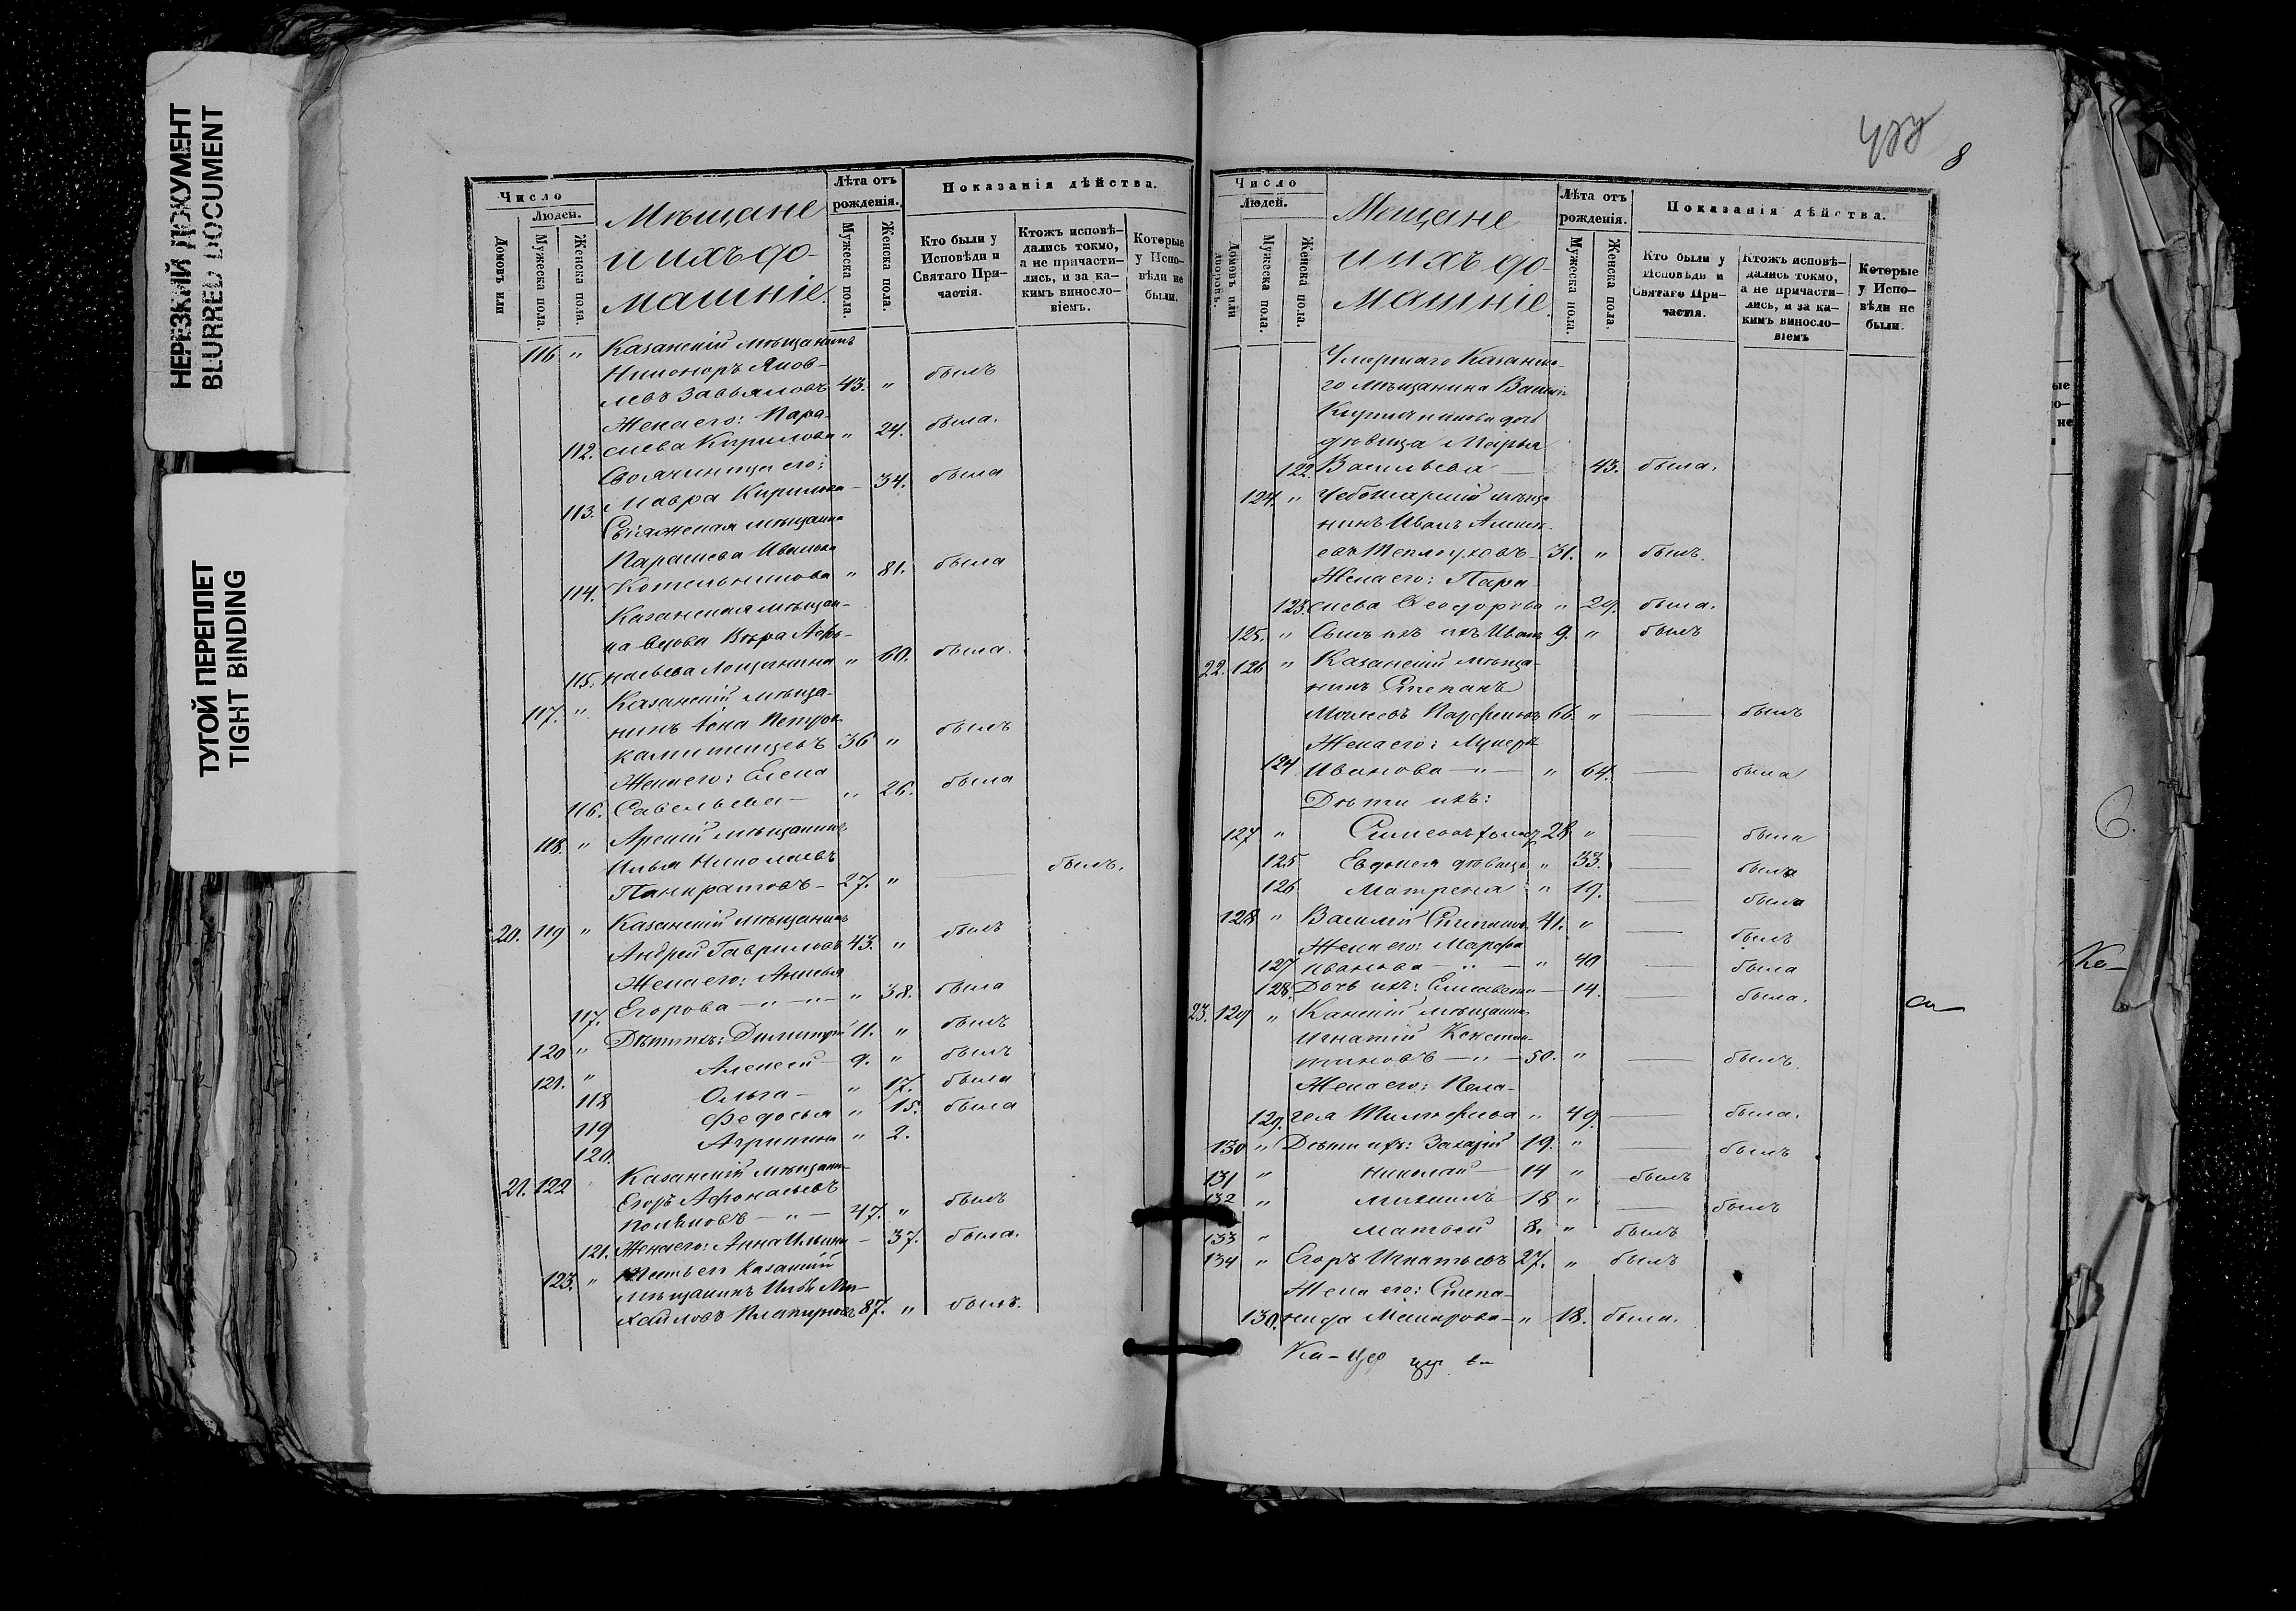 НЕРЕЗКИЙ ДОКУМЕНТ
BLURRED DOCUMENT
ТУГОЙ ПЕРЕПЛЕТ
TIGHT BINDING
Число
Людей.
Домовъ или
Мужеска пола.
Женска пола.
Мѣщане
и ихъ до-
машніе.
Лѣта отъ
рожденія.
Мужеска пола.
Женска пола.
Показанія дѣйства.
Кто были у
Исповѣди и
Святаго При-
частія.
Ктожъ исповѣ-
дались токмо,
а не причасти-
лись, и за ка-
кимъ винословіемъ.
Которые
у Испо-
вѣди не
были.
116. " Казанскій мѣщанинъ
Никоноръ Яков-
левъ Завьяловъ 43. " былъ
Жена его: Пара-
112. скева Кирилова " 24. была.
Своячиница его:
113. Мавра Кирилова - 34. была
Свіяжская мѣщанка
Параскева Иванова
114. Котельникова " 81. была
Казанская мѣщан-
ка вдова Вѣра Афо-
115. насьева " 60. была.
117. " Казанскій мѣща-
нинъ Іона Петров
36 " былъ
Жена его: Елена
116. Савельева - " 26. была
118. " Арскій мѣщанинъ
Илья Николаевъ
Панкратовъ - 27. " — былъ.
20. 119 " Казанскій мѣщанинъ
Андрей Гавриловъ 43. " былъ
Жена его: Анисья
117. Егорова - " - " - " 38. была
120 " Дѣти ихъ: Димитрій 11. " былъ
121. " Алексей - 9. " былъ
118 Ольга - " 17. была
119 Федосья " 15. была
120. Агрипина " 2.
21. 122 Казанскій мѣщани-
Егоръ Афонасьевъ
Поляковъ - " - 47. " былъ
121. Жена его: Анна Ильина - 37. была.
123. " Тесть его Казанскій
мѣщанинъ Илья Ми-
хайловъ 87. " былъ.
8
Число
Людей.
Домовъ или
дворовъ.
Мужеска пола.
Женска пола.
Мещане
и ихъ до-
машніе.
Лѣта отъ
рожденія.
Мужеска пола.
Женска пола.
Показанія дѣйства.
Кто были у
Исповѣди и
Святаго При-
частія.
Ктожъ исповѣ-
дались токмо,
а не причасти-
лись, и за ка-
кимъ винословіемъ
Которые
у Испо-
вѣди не
были.
Умершаго Казанска-
го мѣщанина Васил
Кирпичникова дочь
дѣвица Марья
122. Васильева — 43. была.
124. " Чебоксарскій мѣща
нинъ Иванъ Алексе
евъ Теплоуховъ - 31. " былъ.
Жена его: Пара
123. скева Феодорова " 29. была.
125. " Сынъ ихъ Иванъ 9. " былъ
22. 126 " Казанскій мѣща-
нинъ Степанъ
Моисеевъ 66. " — былъ
Жена его: Лукерья
124 Иванова - " - " 64. — была
Дѣти ихъ:
127 " холост 28 " —
125 Евдокея дѣвица " 33. — была
126 Матрена " 19. — была
128 " Василій Степановъ 41. " — былъ
Жена его: Марфа
127 Иванова - " - " 40 — была
128. Дочь ихъ: Елисавета - 14. — была.
23. 129 " мѣщанинъ
Игнатій Констан-
тиновъ - " - 50. " — былъ.
Жена его: Пела-
129. гея Тимофеева " 49. — была.
130 " Дѣти ихъ: Захарій 19. " — былъ
131 " Николай - 14 " былъ
132 " Михаилъ 18 " — былъ
133 " Матвей 8. " былъ
134 " Егоръ Игнатьевъ 27. " былъ
Жена его: Степа-
130. нида Макарова - " 18. была.
6.